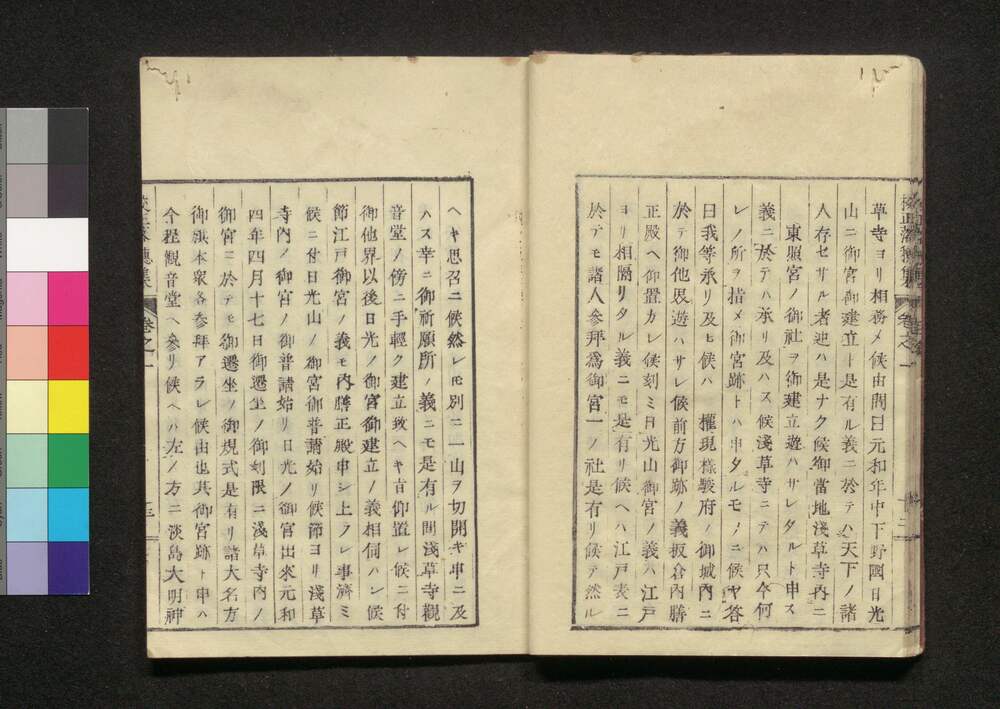 草寺ヨリ相務メ候由問曰元和年中下野國日光
山ニ御宮御建立ト是有ル義ニ於テハ天下ノ諸
人存セサル者迚ハ是ナク候御當地淺草寺內ニ
東照宮ノ御社ヲ御建立遊ハサレタルト申ス
義ニ於テハ承リ及ハス候淺草寺ニテハ只今何
レノ所ヲ措メ御宮跡トハ申タルモノニ候ヤ答
曰我等承リ及ヒ候ハ 權現樣駿府ノ御城內ニ
於テ御他界遊ハサレ候前方御跡ノ義板倉內膳
正殿ヘ御置カレ候刻ミ日光山御宮ノ義ハ江戶
ヨリ相隔リタル義ニモ是有リ候ヘハ江戶表ニ
於テモ諸人參拜為御宮一ノ社是有リ候テ然ル
ヘキ思召ニ候然レモ別ニ一山ヲ切開キ申ニ及
ハス幸ニ御祈願所ノ義ニモ是有ル間淺草寺觀
音堂ノ傍ニ手輕ク建立致ヘキ旨仰置レ候ニ付
御他界以後日光ノ御宮御建立ノ義相伺ハレ候
節江戶御宮ノ義モ內膳正殿申シ上ラレ事濟ミ
候ニ付日光山ノ御宮御普請始リ候節ヨリ淺草
寺內ノ御宮ノ御普請始リ日光ノ御宮出來元和
四年四月十七日御遷坐ノ御刻限ニ淺草寺內ノ
御宮ニ於テモ御遷坐ノ御規式是有リ諸大名方
御旗本衆各參拜アラレ候由也其御宮跡ト申ハ
今程觀音堂ヘ參リ候ヘハ左ノ方ニ淡島大明神
卷之一